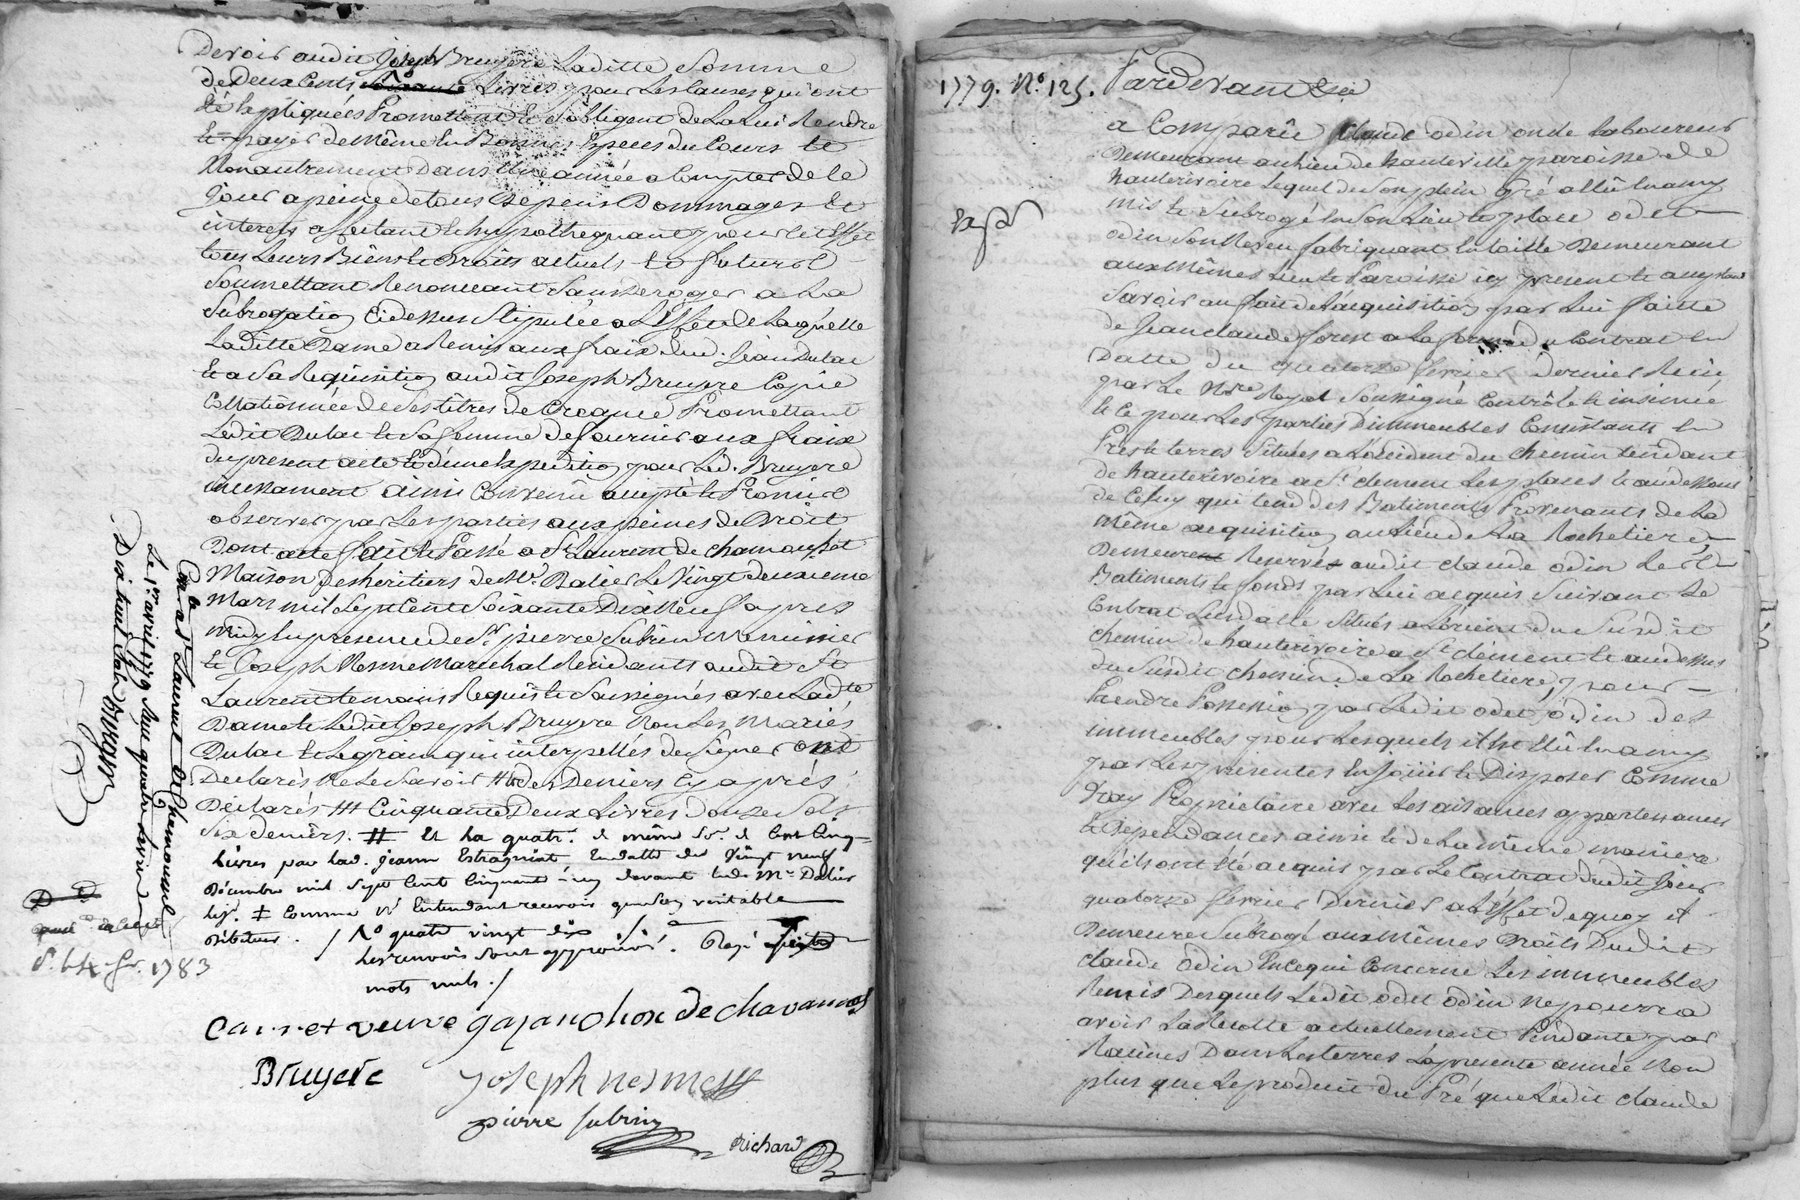 Devoir audit Joseph Bruyere Laditte Somme
de Deux Cents Livres pour Les Causes qui ont
été Expliquées Promettent et S'obligent de La Lui Rendre
et payer de Même En Bonnes Especes du Cours et
Non autrement Dans Une année a Compter de Ce
Jour a peine de tous Depens Dommages et
interets affectant et hypothequant pour Cet Effet
tous Leurs Biens et droits actuels et futurs
Soumettant Renonceant Sans Deroger a La
Subrogation Cidessus Stipulée a L'Effet de Laquelle
Laditte Dame a Remis aux fraix dud. Jean Dulac
et a Sa Requisition audit Joseph Bruyere Copie
Collationnée de Ses titres de Creance Promettant
Ledit Dulac et Sa femme de fournir aux fraix
du present acte et d'une Expedition pour Led. Bruyere
incessament ainsi Convenu accepté et Promis
observer par Les parties aux peines de Droit
Dont acte fait et Passé a St Laurent de chamousset
Maison Des heritiers de Me. Dalier Le Vingt deuxieme
Mars mil Sept Cents Soixante Dix Neuf apres
midy En presence de Sr. pierre Subrin Menuisier
et Joseph Nesme Marechal Residants audit St
Laurent temoins Requis et Soussignés avec Ladte
Dame et Ledit Joseph Bruyere Non Les Mariés
Dulac et Legrain qui interpellés de Signer ont
Declarés Ne Le Savoir # des Deniers Cy après
Déclarés ## Cinquante Deux Livres Douze Sols
Six deniers. # Et La quatr. de même So. de Cent Cinq
Livres par lad. jeanne Estragniat En datte du Vingt neuf
Décembre mil Sept Cent Cinquante devant led. Me Dalier
comme Entendant recevoir que Son veritable
débiteur. / No quatre vingt dix
Les renvois sont approuvés. Rayé Sept
mots nuls. /
Carret veuve gajanchon de chavannes
Bruyere Joseph nesme
pierre subrin
Richard
Con.lé a St Laurent de Chamousset
Le 1er. avril 1779 Reçu quatre livres
Dix huit Sols
1783
1779. No. 125. Pardevant Les
a Comparû Claude odin oncle laboureur
Demeurant au lieu de hauteville paroisse de
hauterivoire Lequel de Son plein gré a Elû En amy
mis et Subrogé En Son Lieu et place odet
odin Son Neveu fabriquant En toille Demeurant
aux Mêmes Lieu et Paroisse icy present et acceptant
Savoir au fait de L'acquisition par Lui faitte
de Jean claude forest a La forme du Contrat En
Datte du quatorze fevrier Dernier Reçu
par Le Nre Royal Soussigné Controlé et insinué
et Ce pour Les parties D'immeubles Consistants En
Prés et terres Situées a L'occident du chemin tendant
de hauterivoire a St. clement Les places et audessous
de Celuy qui tend des Batiments Provenants de La
même acquisition au Lieu de La Rochetiere,
Demeurent Reservés audit claude odin Les
Batiments et fonds par Lui acquis Suivant Le
Contrat Susdatté Situés a L'orient du Susdit
chemin de hauterivoire a St. clement et au dessus
du Susdit chemin de La Rochetiere, pour
Prendre Possession par Ledit odet odin des
immeubles pour Lesquels il Est Elû En amy
par Les presentes En Jouir et Disposer Comme
Vray Proprietaire avec Les aisances appartenances
et Dependances ainsi et de La Même maniere
qu'ils ont été acquis par Le Contrat dudit Jour
quatorze fevrier Dernier a L'Effet de quoy il
Demeure Subrogé aux Mêmes Droits Dudit
claude odin En Ce qui Concerne Les immeubles
Remis Desquels Ledit odet odin Ne pourra
avoir La Recolte actuellement Pendante par
Racines Dans Les terres La presente année Non
plus que Le produit du Pré que Ledit claude